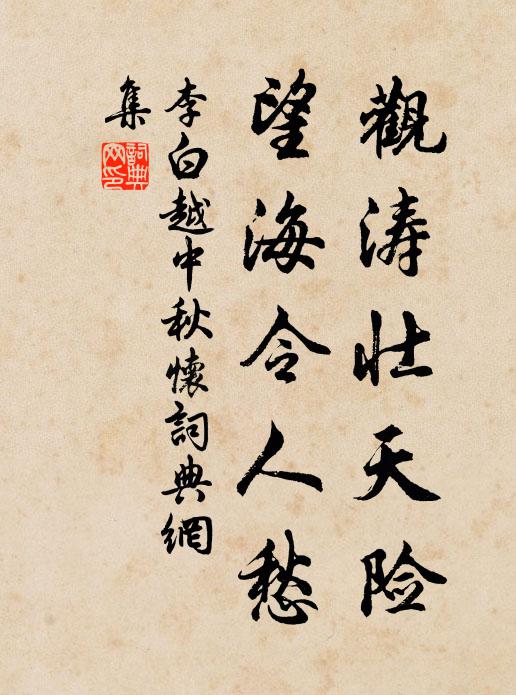 觀涛壮天险
望海令人愁
李白越中秋懷詞典網
集
詞典
网印